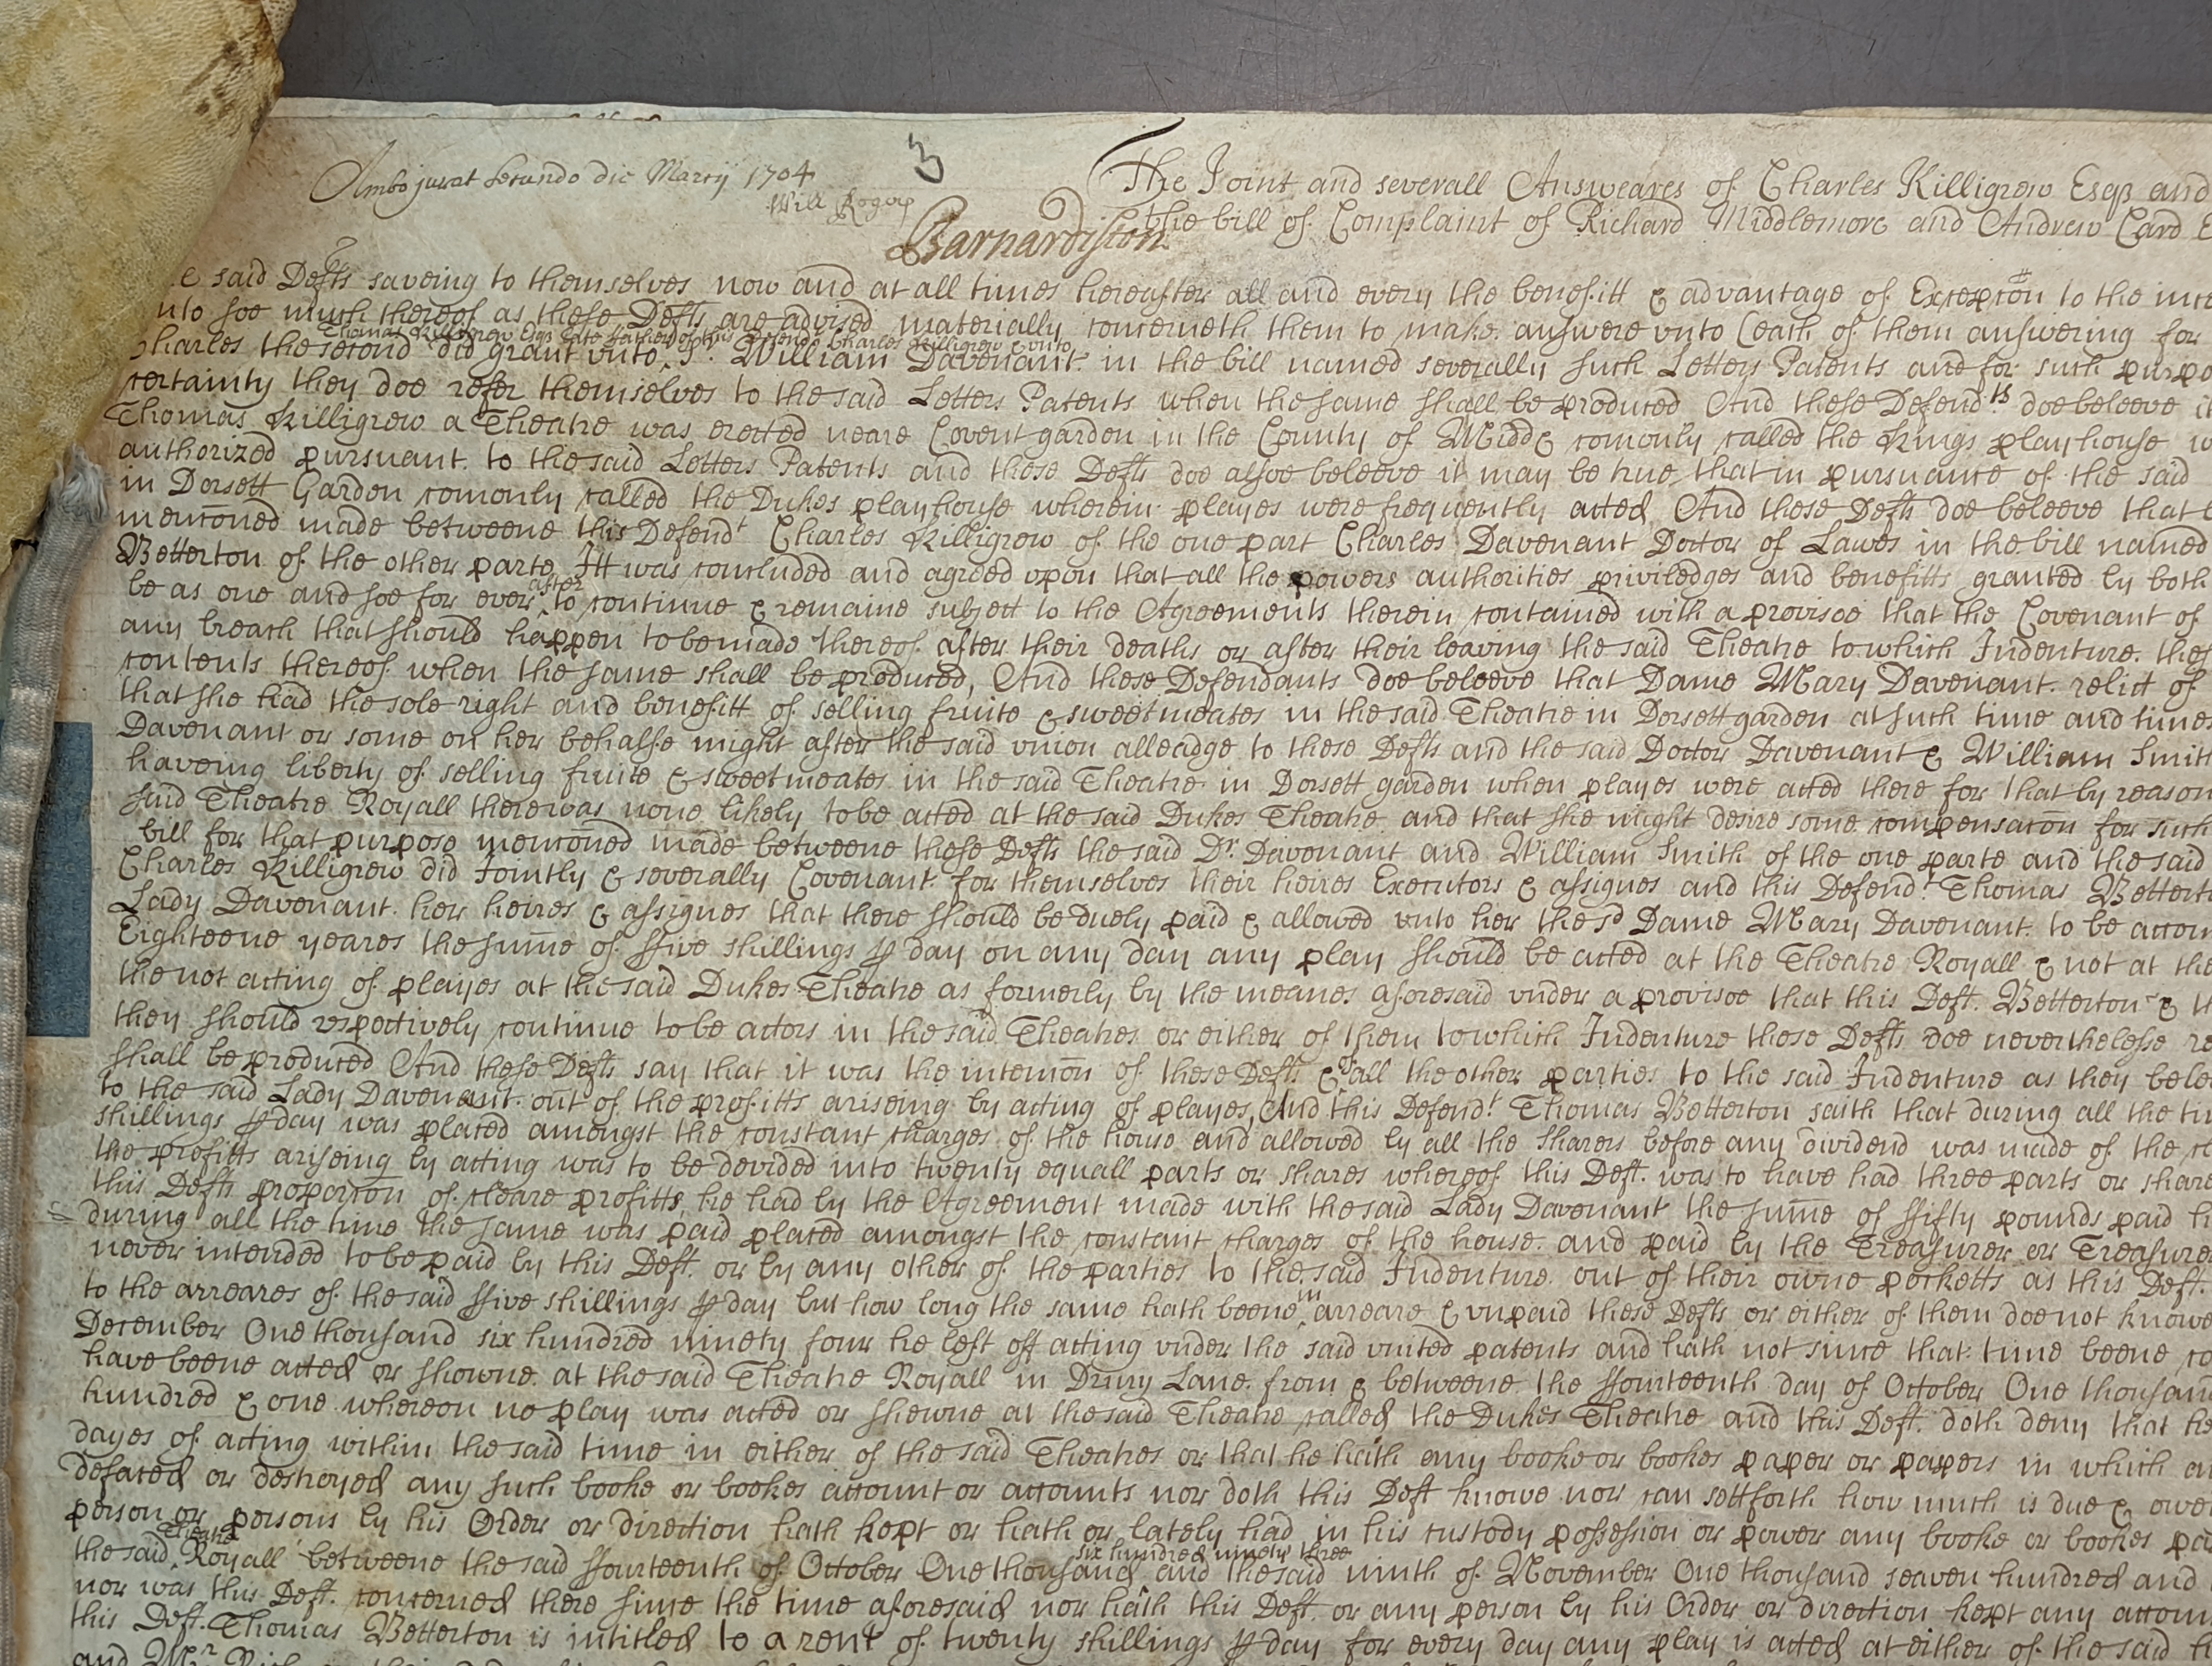 3
Ambo jurat secundo die Martij 1704
Will Rogers
The Joint and severall Answeares of Charles Killigrew Esqr and
Barnardiston
the bill of Complaint of Richard Middlemore and Andrew Card E
said Defts saveing to themselves now and at all times hereafter all and every the benefitt & advantage of Excepcon to the
unto soe much thereof as these Defts are advised materially concerneth them to make answere vnto Each of them answering for
Thomas Killigrew Esqr late father of this Defend Charles Killigrew & vnto
Charles the second did grant vnto Sr. William Davenant in the bill named severally such Letters Patents and for such purpo
certainty they doe refer themselves to the said Letters Patents when the same shall be produced And these Defendts doe beleeve it
Thomas Killigrew a Theatre was erected neare Covent garden in the County of Midd comonly called the Kings playhouse w
authorized pursuant to the said Letters Patents and these Defts doe alsoe beleeve it may be true that in pursuance of the said
in Dorsett Garden comonly called the Dukes playhouse wherein playes were frequently acted And these Defts doe beleeve that
menconed made betweene this Defendt Charles Killigrew of the one part Charles Davenant Doctor of Lawes in the bill named
Betterton of the other parte Itt was concluded and agreed vpon that all the powers authorities priviledges and benefitts granted by both
be as one and soe for ever after to continue & remaine subject to the Agreements therein contained with a provisoe that the Covenant of
any breach that should happen to be made thereof after their deaths or after their leaving the said Theatre to which Indenture thes
contents thereof when the same shall be produced, And these Defendants doe beleeve that Dame Mary Davenant relict of
that she had the sole right and benefitt of selling fruite & sweetmeates in the said Theatre in Dorsettgarden at such time and times
Davenant or some on her behalfe might after the said vnion alleadge to these Defts and the said Doctor Davenant & William Smith
haveing liberty of selling fruite & sweetmeates in the said Theatre in Dorsett garden when playes were acted there for that by reason
said Theatre Royall there was none likely to be acted at the said Dukes Theatre and that she might desire some compensacon for such
bill for that purpose menconed made betweene these Defts the said Dr. Davenant and William Smith of the one parte and the said
Charles Killigrew did Jointly & severally Covenant for themselves their heires Executors & assignes and this Defendt Thomas Betterto
Lady Davenant her heires & assignes that there should be duely paid & allowed vnto her the sd Dame Mary Davenant to be accom
Eighteene yeares the sume of ffive shillings p day on any day any play should be acted at the Theatre Royall & not at the
the not acting of playes at the said Dukes Theatre as formerly by the meanes aforesaid vnder a provisoe that this Deft. Betterton & th
they should respectively continue to be actors in the said Theatres or either of them to which Indenture these Defts doe neverthelesse re
shall be produced And these Defts say that it was the intencon of these Defts & of all the other parties to the said Indenture as they bele
to the said Lady Davenant out of the profitts ariseing by acting of playes, And this Defendt Thomas Betterton saith that during all the ti
shillings p day was placed amongst the constant charges of the house and allowed by all the sharers before any dividend was made of the cl
the profitts ariseing by acting was to be devided into twenty equall parts or shares whereof this Deft. was to have had three parts or share
this Defts proporcon of cleare profitts, he had by the Agreement made with the said Lady Davenant the sume of ffifty pounds paid hi
during all the time the same was paid placed amongst the constant charges of the house and paid by the Treasurer or Treasure
never intended to be paid by this Deft. or by any other of the parties to the said Indenture out of their owne pocketts as this Deft.
to the arreares of the said ffive shillings p day but how long the same hath beene in arreare & vnpaid these Defts or either of them doe not knowe
December One thousand six hundred ninety four he left off acting vnder the said vnited patents and hath not since that time beene co
have beene acted or showne at the said Theatre Royall in Drury Lane from & betweene the ffourteenth day of October One thousan
hundred & one whereon no play was acted or shewne at the said Theatre called the Dukes Theatre and this Deft. doth deny that he
dayes of acting within the said time in either of the said Theatres or that he hath any booke or bookes paper or papers in which a
defaced or destroyed any such booke or bookes account or accounts nor doth this Deft knowe nor can sett forth how much is due & owe
person or persons by his Order or direction hath kept or hath or lately had in his custody possession or power any booke or bookes pa
the said Theatre Royall betweene the said ffourteenth of October One thousand six hundred ninety three and the said ninth of November One thousand seaven hundred and
nor was this Deft. concerned there since the time aforesaid nor hath this Deft. or any person by his Order or direction kept any accom
this Deft. Thomas Betterton is intitled to a rent of twenty shillings p day for every day any play is acted at either of the said t
and Mr Rich